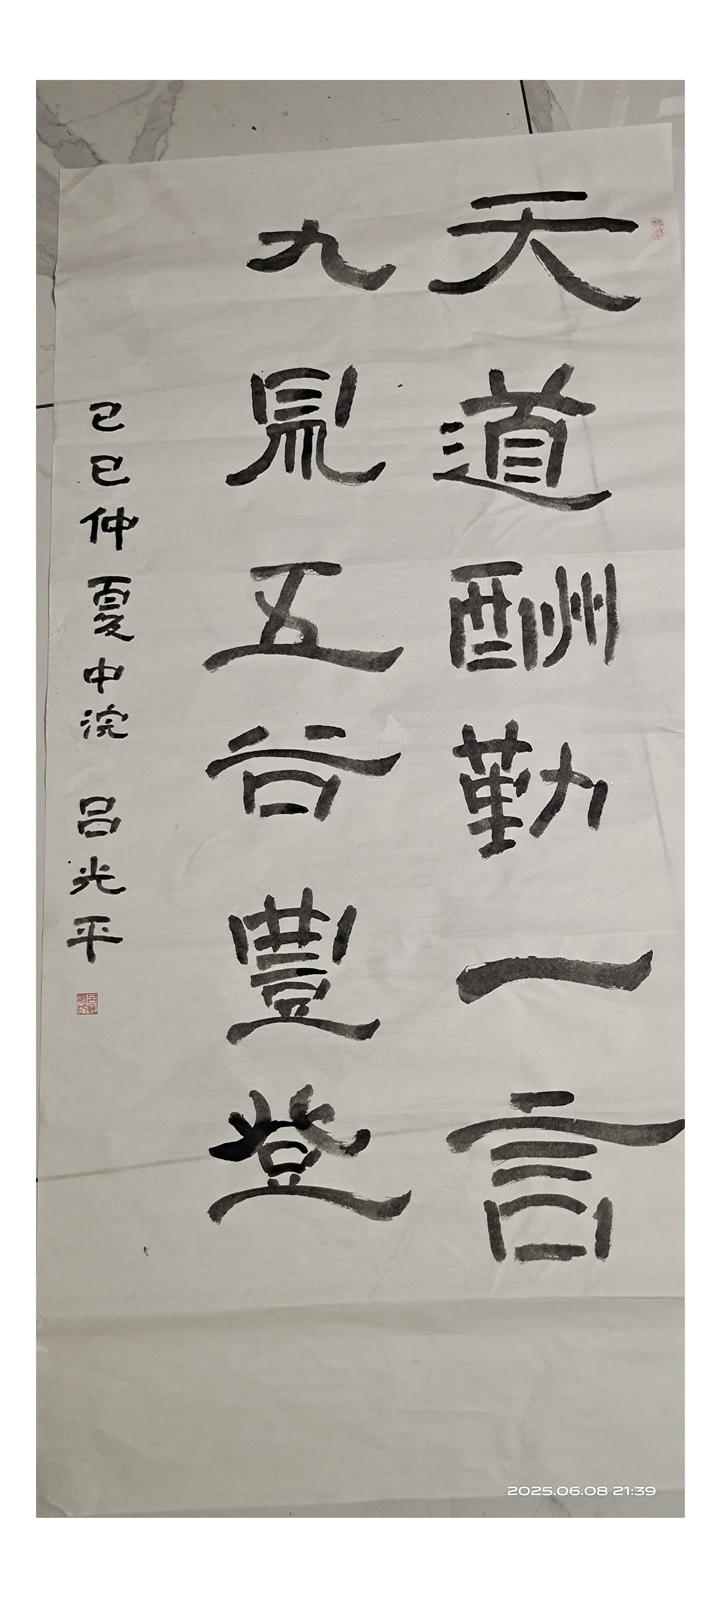 天道酬勤一言
九鼎五谷豐登
己巳仲夏中浣 吕光平
2025.06.08 21:39